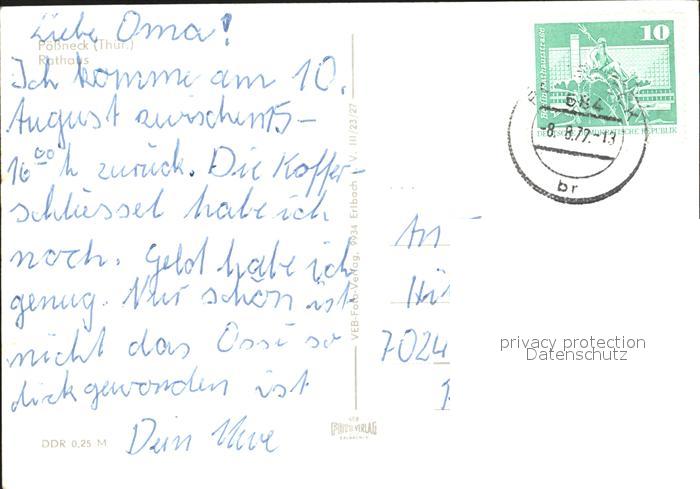 Liebe Oma!
Pößneck (Thür.)
Rathaus
Ich komme am 10.
August zwischen 15-
16⁰⁰ h zurück. Die Koffer-
schlüssel habe ich
noch. Geld habe ich
genug. Nur schön ist
nicht das Ossi so
dick geworden ist
Dein Uwe
DDR 0,25 M
VEB-Foto-Verlag, 9934 Erlbach V. III/23/27
FOTO VERLAG
ERLBACH V.
10
DEUTSCHE DEMOKRATISCHE REPUBLIK
684
-8. 8.77.-13
br
An
7024
privacy protection
Datenschutz